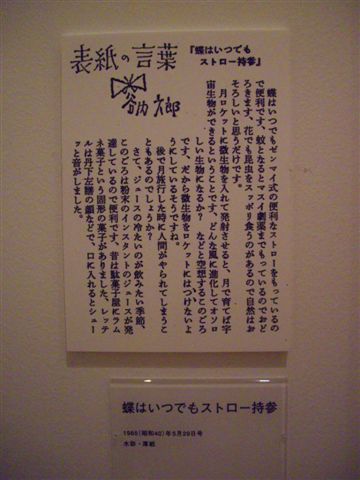 表紙の言葉
『蝶はいつでも
ストロー持参』
谷内六郎
蝶はいつでもゼンマイ式の便利なストローをもっているの
で便利です、蚊となるとマスイ劇薬までもっているのでおど
ろきます、花でも昆虫をスッポリ食うのがあるので自然はお
そろしいと思うだけです。
月ロケットに微生物を入れて発射させると、月で育てば宇
宙生物ができるということです、どんな風に進化してオソロ
しい生物になるか？などと空想するこのごろ
です、だから微生物をロケットにはつけないよ
うにしているそうですね。
後で月旅行した時に人間がやられてしまうこ
ともあるのでしょうか？
さて、ジュースの冷たいのが飲みたい季節、
このごろは粉末のインスタントのジュースが発
達しているので便利です、昔は駄菓子屋にラム
ネ菓子という固形の菓子がありました、レッテ
ルは丹下左膳の顔などで、口に入れるとシュー
ッと音がしました。
蝶はいつでもストロー持参
1965(昭和40)年5月29日号
水彩・厚紙